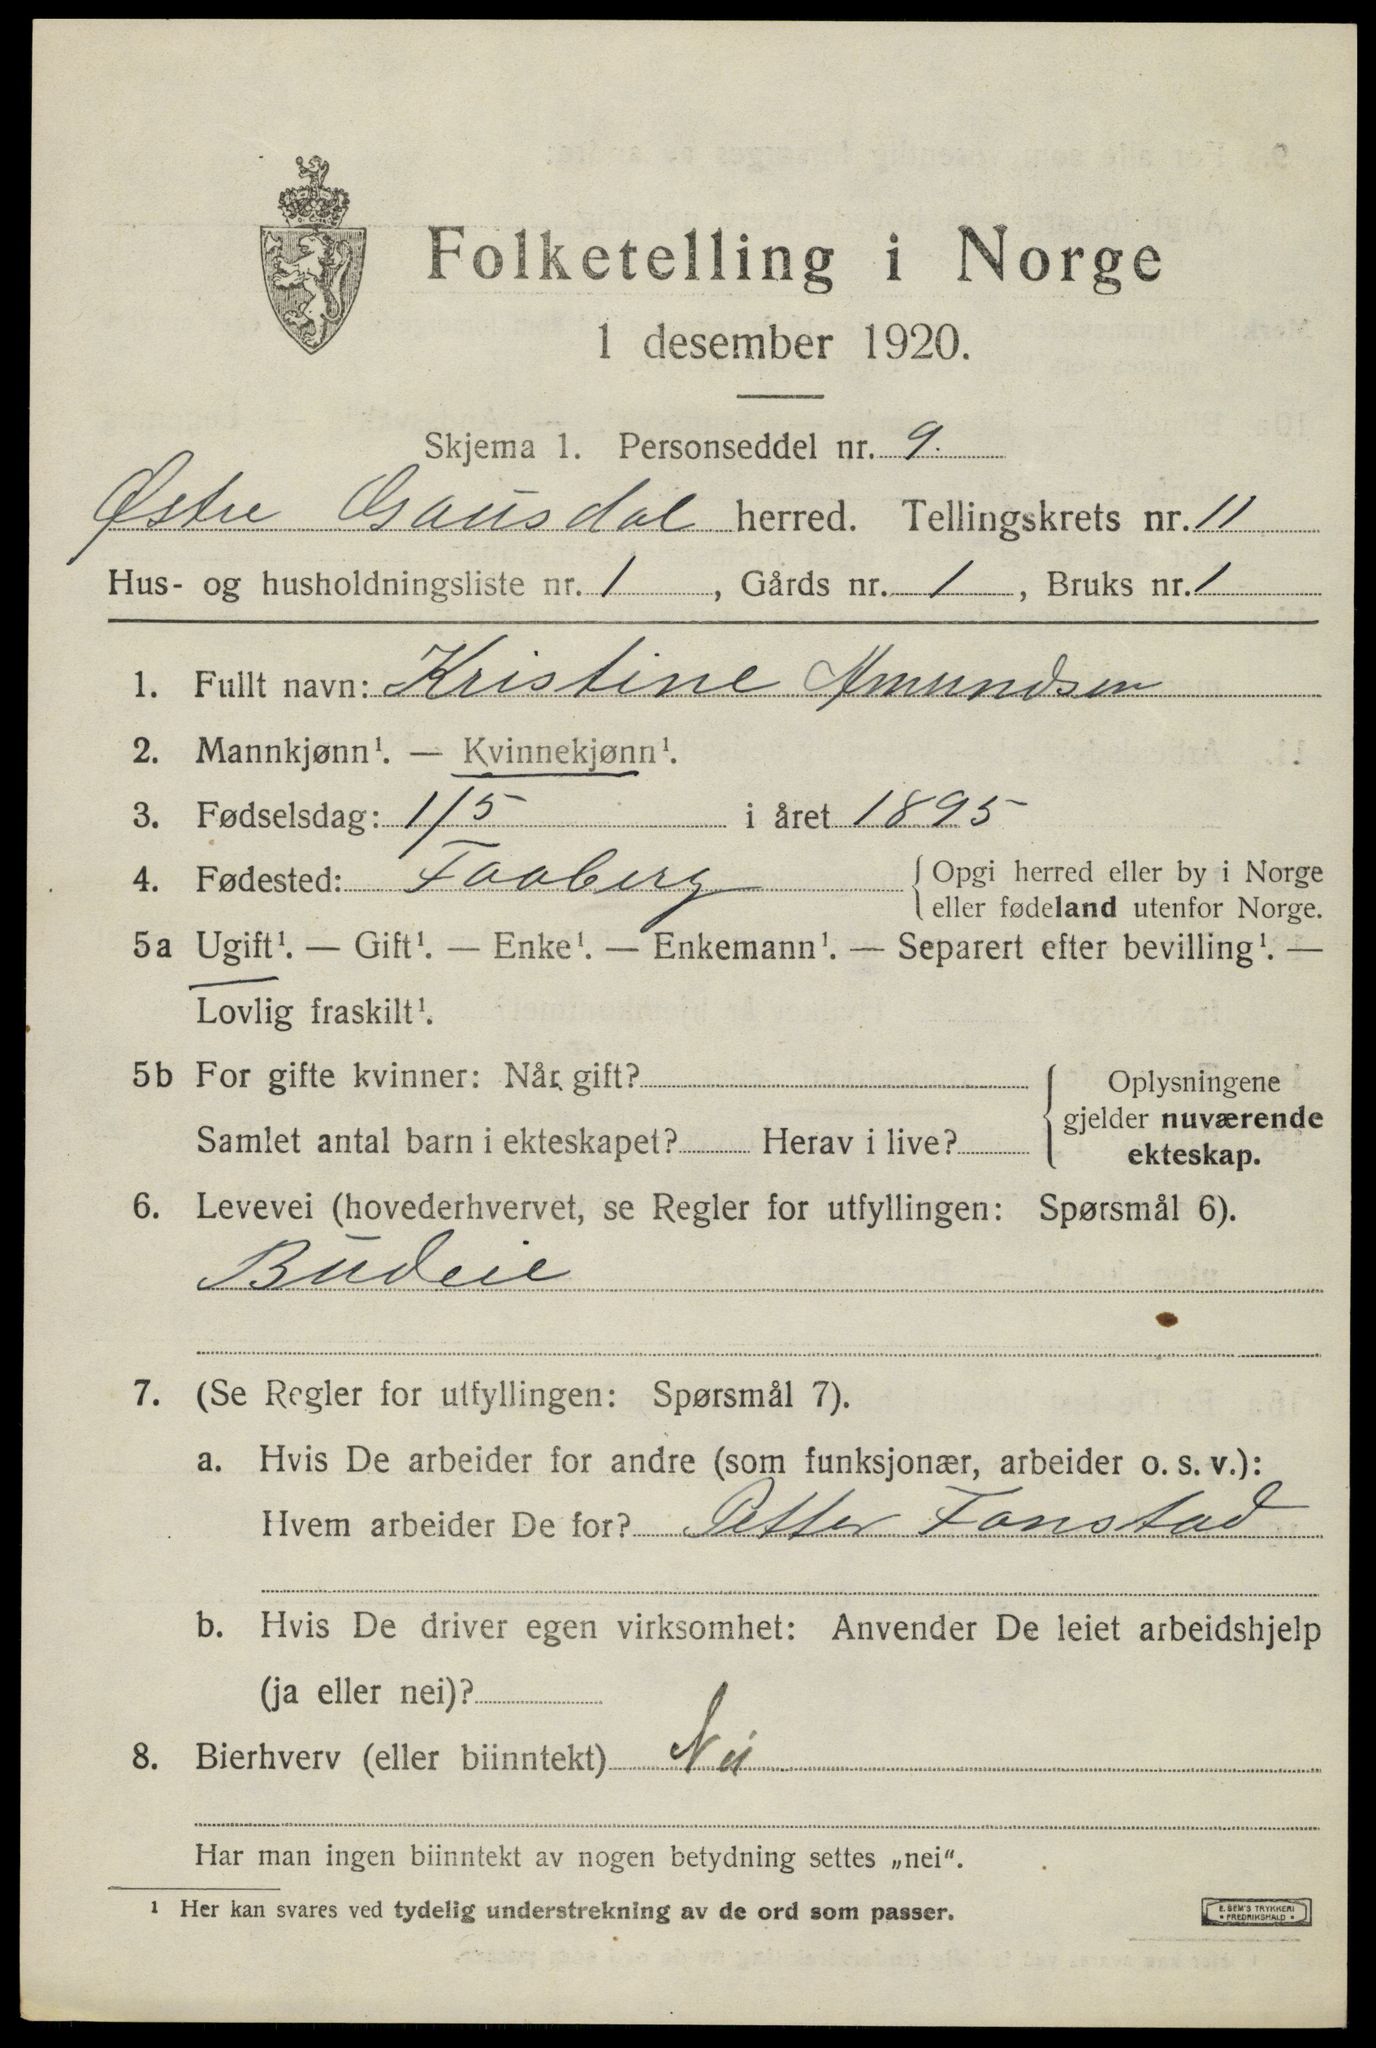 Folketelling i Norge
1 desember 1920.
Skjema 1. Personseddel nr. 9.
Østre Gausdal herred. Tellingskrets nr. 11
Hus- og husholdningsliste nr. 1, Gårds nr. 1, Bruks nr. 1
1. Fullt navn: Kristine Amundsen
2. Mannkjønn¹. — Kvinnekjønn¹.
3. Fødselsdag: 1/5 i året 1895
4. Fødested: Faaberg { Opgi herred eller by i Norge
eller fødeland utenfor Norge.
5a Ugift¹. — Gift¹. — Enke¹. — Enkemann¹. — Separert efter bevilling¹. —
Lovlig fraskilt¹.
5b For gifte kvinner: Når gift?
Samlet antal barn i ekteskapet? Herav i live?
{ Oplysningene
gjelder nuværende
ekteskap.
6. Levevei (hovederhvervet, se Regler for utfyllingen: Spørsmål 6).
Budeie
7. (Se Regler for utfyllingen: Spørsmål 7).
a. Hvis De arbeider for andre (som funksjonær, arbeider o. s. v.):
Hvem arbeider De for? Petter Fonstad
b. Hvis De driver egen virksomhet: Anvender De leiet arbeidshjelp
(ja eller nei)?
8. Bierhverv (eller biinntekt) Nei
Har man ingen biinntekt av nogen betydning settes „nei".
¹ Her kan svares ved tydelig understrekning av de ord som passer.
E. SEM'S TRYKKERI
• FREDRIKSHALD •